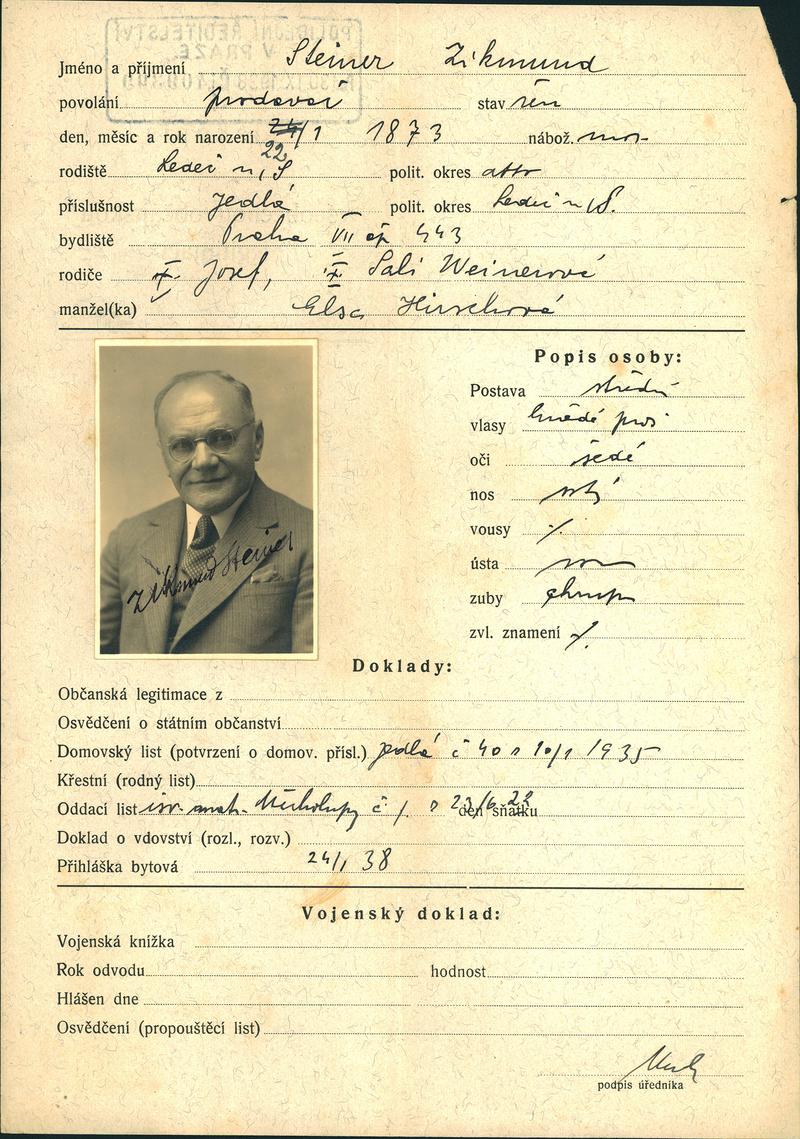 POLICEJNÍ ŘEDITELSTVÍ
V PRAZE
Jméno a příjmení Steiner Zikmund
povolání prodavač stav žen
den, měsíc a rok narození 24/1 1873 nábož. mos
22
rodiště Ledeč n/S polit. okres atto
příslušnost Jedlá polit. okres Ledeč n/S.
bydliště Praha VII čp 443
rodiče Josef, Sali Weinerová
manžel(ka) Elsa Hirschová
Popis osoby:
Postava střední
vlasy hnědé pros
oči šedé
nos
vousy /.
ústa
zuby chrup
zvl. znamení /.
Zikmund Steiner
Doklady:
Občanská legitimace z
Osvědčení o státním občanství
Domovský list (potvrzení o domov. přísl.) Jedlá č 40 z 10/1 1935
Křestní (rodný list)
Oddací list isr. mat. Měcholupy č /. z 23/6 22 den sňatku
Doklad o vdovství (rozl., rozv.)
Přihláška bytová 24/1 38
Vojenský doklad:
Vojenská knížka
Rok odvodu hodnost
Hlášen dne
Osvědčení (propouštěcí list)
podpis úředníka